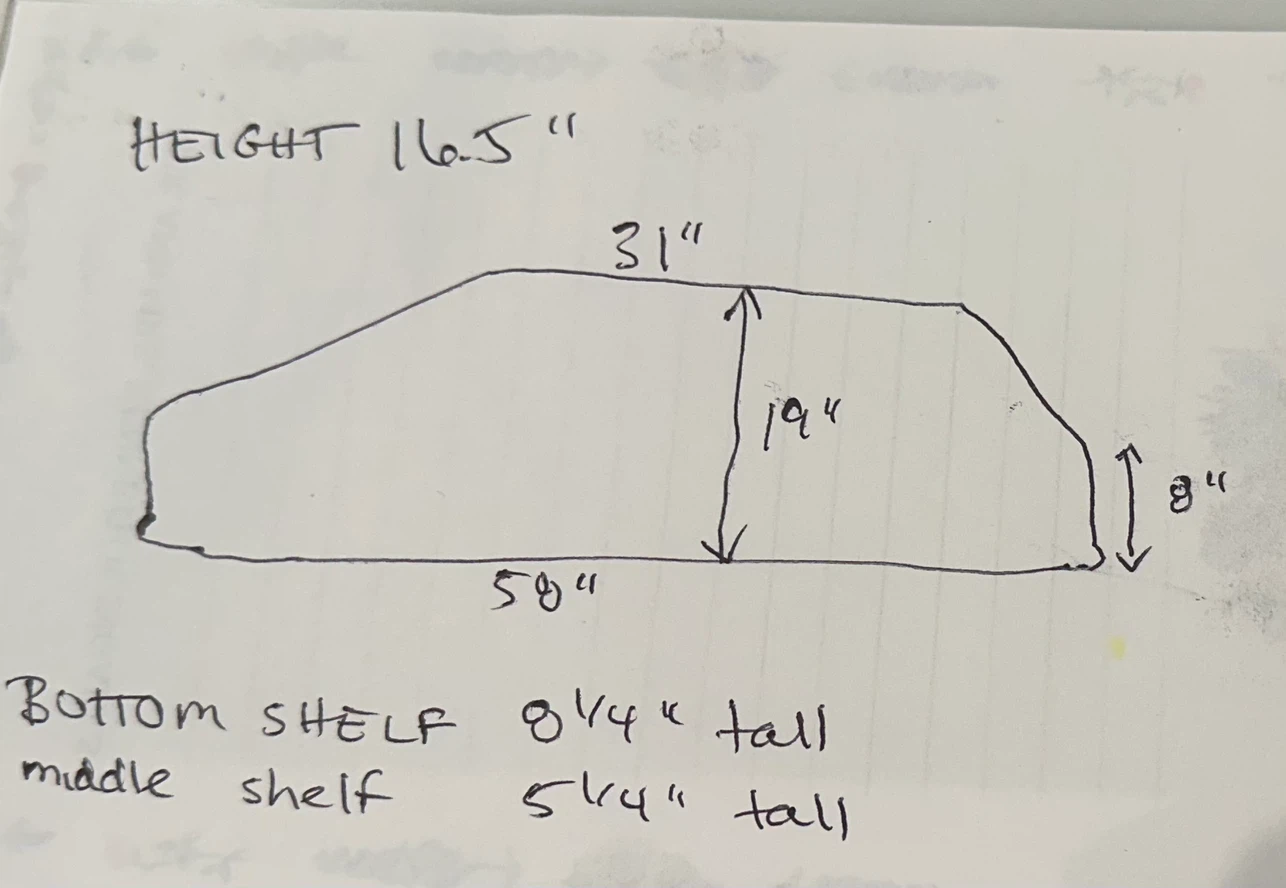 HEIGHT 16.5"
31"
19"
8"
58"
BOTTOM SHELF 8 1/4" tall
middle shelf 5 1/4" tall